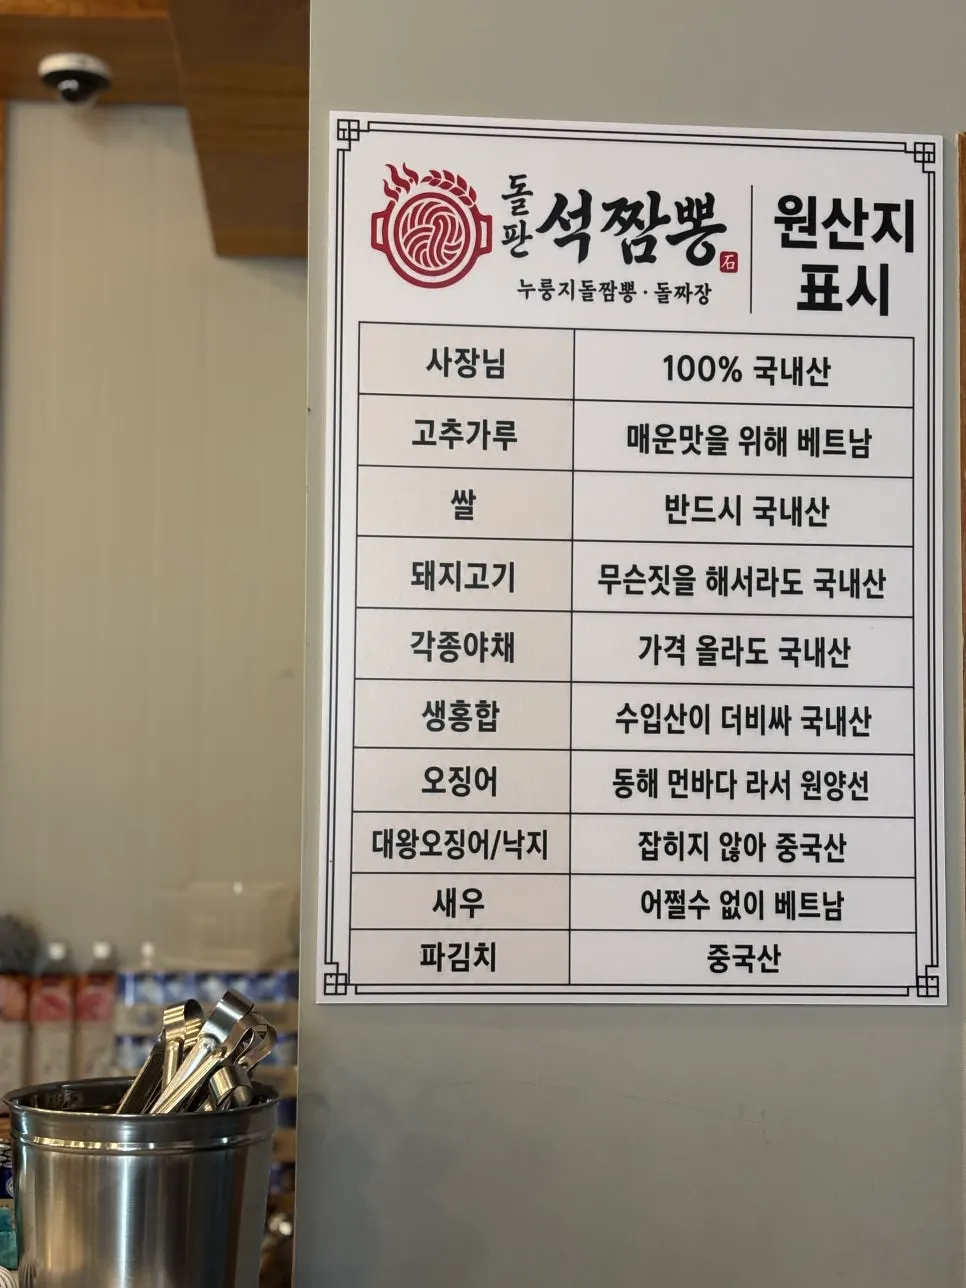 돌판 석짬뽕
石
누룽지돌짬뽕·돌짜장
원산지
표시
사장님 100% 국내산
고추가루 매운맛을 위해 베트남
쌀 반드시 국내산
돼지고기 무슨짓을 해서라도 국내산
각종야채 가격 올라도 국내산
생홍합 수입산이 더비싸 국내산
오징어 동해 먼바다 라서 원양선
대왕오징어/낙지 잡히지 않아 중국산
새우 어쩔수 없이 베트남
파김치 중국산